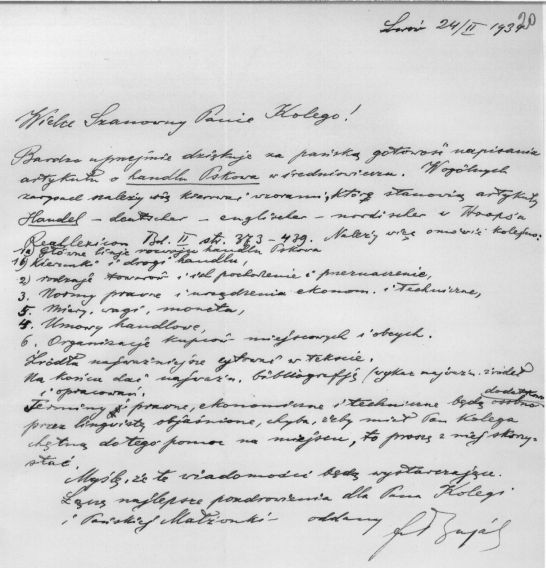 20
Lwów 24/II 1934
Wielce Szanowny Panie Kolego!
Bardzo uprzejmie dziękuję za pańską gotowość napisania
artykułu o handlu Pskowa w średniowieczu. W ogólnych
zarysach należy się kierować wzorami, które stanowią artykuły
Handel – deutscher – englischer – nordischer w Hoopsa
Reallexicon Bd. II str. 373–439. Należy więc omówić kolejno:
1a) główne linje rozwoju handlu Pskowa
1b) kierunki i drogi handlu,
2) rodzaje towarów i ich pochodzenie i przeznaczenie,
3. Normy prawne i urządzenia ekonom. i techniczne,
5. Miary, wagi, moneta,
4. Umowy handlowe,
6. Organizacje kupców miejscowych i obcych.
Źródła najważniejsze cytować w tekście.
Na końcu dać najważn. bibliografję (wykaz najważn. źródeł
i opracowań.
dodatkowo
Terminy prawne, ekonomiczne i techniczne będą
przez lingwistę objaśnione, chyba, żeby miał Pan Kolega
chętną do tego pomoc na miejscu, to proszę z niej skorzy-
stać.
Myślę, że te wiadomości będą wystarczające.
Łączę najlepsze pozdrowienia dla Pana Kolegi
i Pańskiej Małżonki – oddany
Bujak